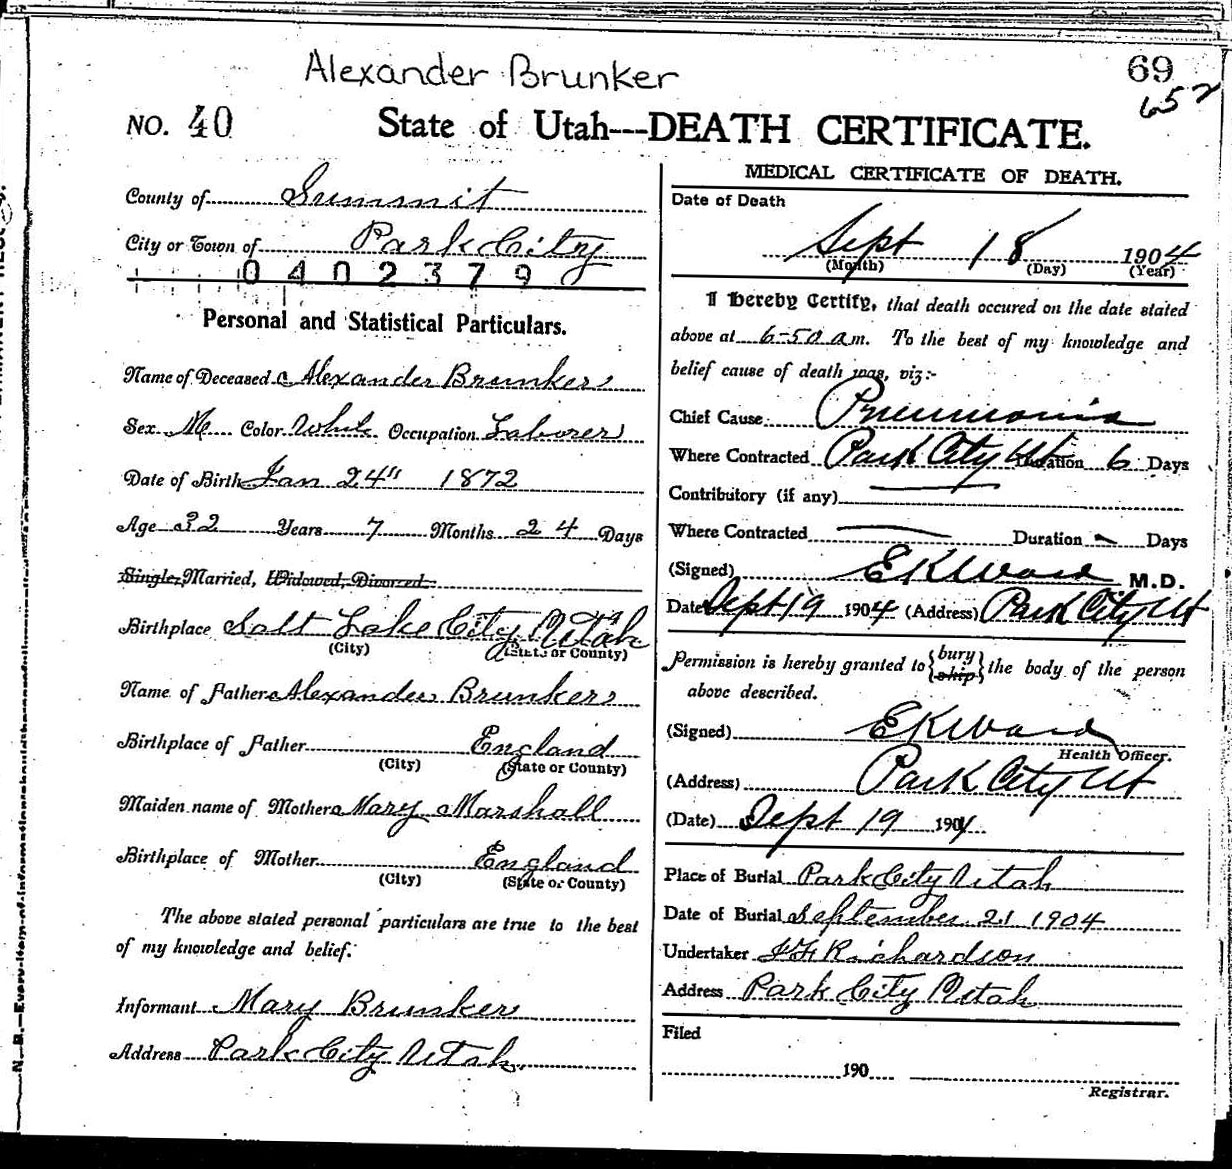 Alexander Brunker
69
652
NO. 40 State of Utah---DEATH CERTIFICATE.
County of Summit
City or Town of Park City
0 4 0 2 3 7 9
Personal and Statistical Particulars.
Name of Deceased Alexander Brunker
Sex M Color White Occupation Laborer
Date of Birth Jan 24" 1872
Age 32 Years 7 Months 24 Days
Single, Married, Widowed, Divorced.
Birthplace Salt Lake City Utah
(City) (State or County)
Name of Father Alexander Brunker
Birthplace of Father England
(City) (State or County)
Maiden name of Mother Mary Marshall
Birthplace of Mother England
(City) (State or County)
The above stated personal particulars are true to the best
of my knowledge and belief.
Informant Mary Brunker
Address Park City Utah.
MEDICAL CERTIFICATE OF DEATH.
Date of Death
Sept 18 1904
(Month) (Day) (Year)
I hereby Certify, that death occured on the date stated
above at 6-50 a m. To the best of my knowledge and
belief cause of death was, viz:-
Chief Cause Pneumonia
Where Contracted Park City Ut Duration 6 Days
Contributory (if any)
Where Contracted Duration Days
(Signed) E K Ward M.D.
Date Sept 19 1904 (Address) Park City Ut
Permission is hereby granted to {bury ship} the body of the person
above described.
(Signed) E K Ward
Health Officer.
(Address) Park City Ut
(Date) Sept 19 1904
Place of Burial Park City Utah
Date of Burial September 21 1904
Undertaker Richardson
Address Park City Utah
Filed
190
Registrar.